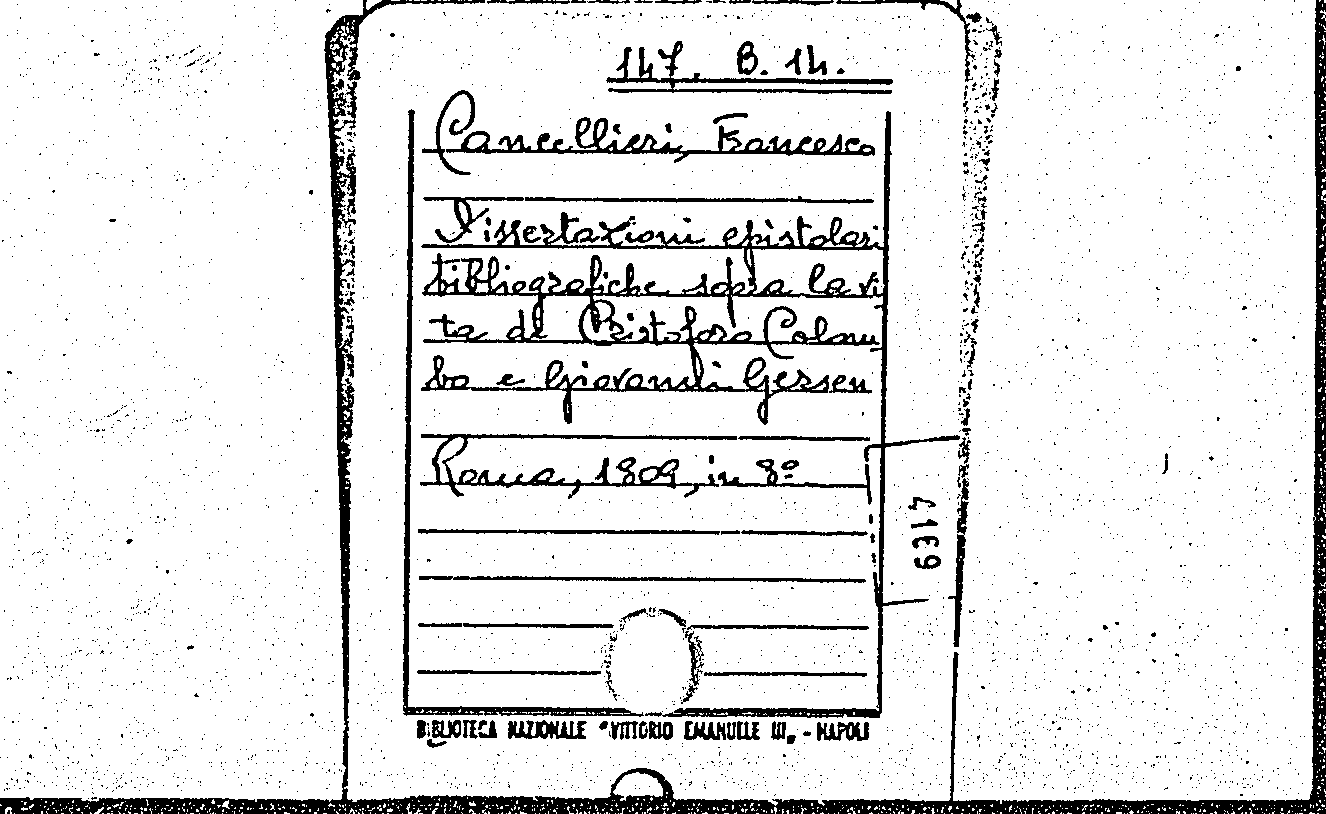 147. B. 14.
Cancellieri, Francesco
Dissertazioni epistolari
bibliografiche sopra la vi
ta di Cristoforo Colom_
bo e Giovanni Gersen
Roma, 1809, in 8º
4169
BIBLIOTECA NAZIONALE "VITTORIO EMANUELE III„ - NAPOLI